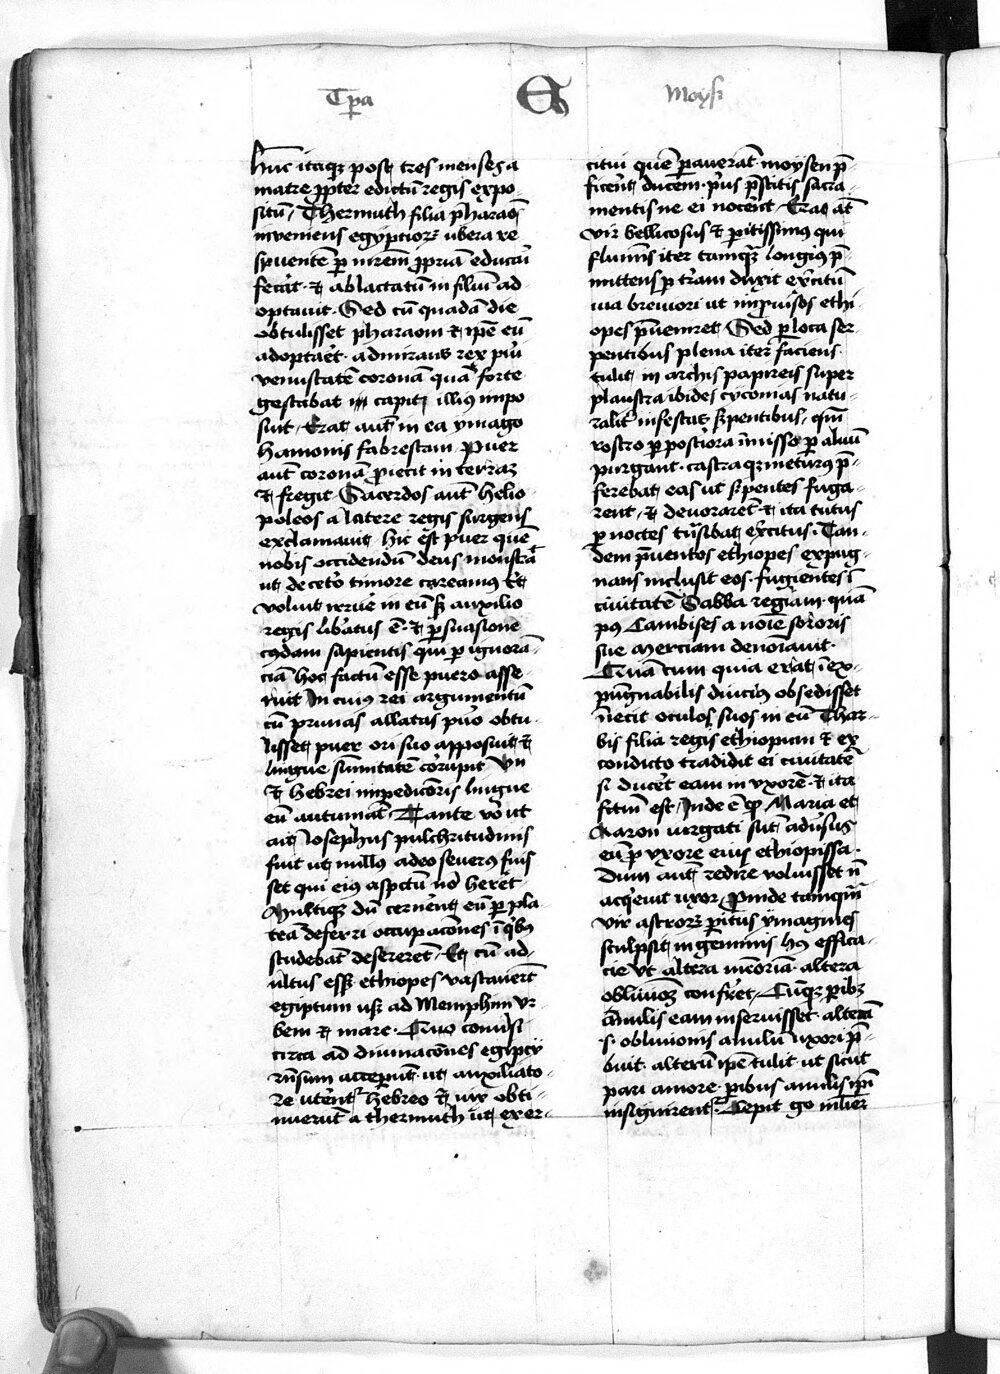 Tp̄a
Moysi
Hūc itaqȝ post tres menses a
matre ꝓpter edictū regis expo-
sitū, Thermuth filia pharaoīs
inveniens egyptiorꝫ ubera re
spuentē ꝑ mirem̄ ꝓpriā educari
fecit · ⁊ ablactatū in filiū ad-
optauit · Sed cū quadā die
obtulisset pharaoni ⁊ ip̄e eū
adoptaret · admirans rex pu̓i
venustatē coronā quā forte
gestabat in capite illius inpo
suit · Erat aut̄ in ea ymago
hamonis fabrefacta · Puer
aut̄ coronā ꝓiecit in terraꝫ
⁊ fregit · Sacerdos aut̄ helio-
poleos a latere regis surgens
exclamauit hic est puer quē
nobis occidendū deus monstᵃ
ut de cetero timore careamus et
voluit irrue in eū sꝫ auxilio
regis lib̓atus ē · ⁊ ꝑsuasione
cuiꝰdam sapientis qui ꝑ ignorā-
ciā hoc factū esse puero asse-
ruit In cuius rei argumentū
cū prunas allatas pu̓o obtu-
lisset puer ori suo apposuit ⁊
lingue sūmitatē corrupit Vn̄
⁊ hebrei inpedicōris lingue
eū autumāt · Tante v̓o ut
ait Iosephus pulchritudinis
fuit ut nullus adeo seuerꝰ fuis
set qui eiꝰ aspectū nō hereret
Multiqȝ dū cernent eū ꝑ pla-
teā deferri occupacōnes ī qⁱbꝫ
studebāt desererēt · Et cū ad-
ultus esset ethiopes vastauerūt
egiptum usqȝ ad Memphim vr-
bem ⁊ mare · Quo com̄si
circa ad diuinacōnes egipcij
rn̄sum acceperūt · ut auxiliato-
re uterent̄ hebreo ⁊ vix obti-
nuerūt a thermuth ut exer-
citui quē ꝑauerāt moysen p̄-
ficeret ducem · pⁱus p̄stitis sacra-
mentis ne ei nocēnt · Erat at̄
vir bellicosus ⁊ ꝑitissimus qui
flumīs iter tamqȝ longiꝰ p̄-
mittens ꝑ t̓ram duxit ex̓citū
uia breuiori ut inꝓuisos ethi-
opes p̄ueniret Sed ꝑ loca ser-
pentibus plena iter faciens
tulit in archis papireis super
plaustra ibides cyconias natu-
ralit̓ infestas s̓pentibus, quī
rostro ꝑ post̓iora īmisso ꝑ aluū
purgant · castraqȝ metiturꝰ p̄-
ferebat eas ut s̓pentes fuga-
rent, ⁊ deuorarēt · ⁊ ita tutus
ꝑ noctes tn̄sibat ex̓citus · Tan-
dem p̄uentos ethiopes expug-
nans inclusit eos · fugientes ī
ciuitatē Sabba regiam · quā
pꝰ Cambises a noīe sororis
sue Meroam denoīauit ·
Quā cum quia erat īex-
pūgnabilis diucius obsedisset
īiecit oculos suos in eū Thar-
bis filia regis ethiopum ⁊ ex
condicto tradidit ei ciuitatē
si duc̓et eam in vxorē · ⁊ ita
factū est, Inde ē ꝙ Maria et
Aaron iurgati sūt adūsus
eū ꝓ vxore eius ethiopissa ·
Dum aut redire voluisset nō
acqⁱeuit uxor, Proinde tamqȝ
vir astrorꝫ ꝑitus ymagines
sculpsit in gemmis hꝰ effica-
cie ut altera memoriā altera
obliuionē conferret, Cūqȝ paribꝫ
anulis eam inseruisset alterā
·s· obliuionis anulū uxori p̄-
buit · alterū ip̄e tulit ut sicut
pari amore paribus anulis ip̄i
insignirentur · Cepit ḡo mulier